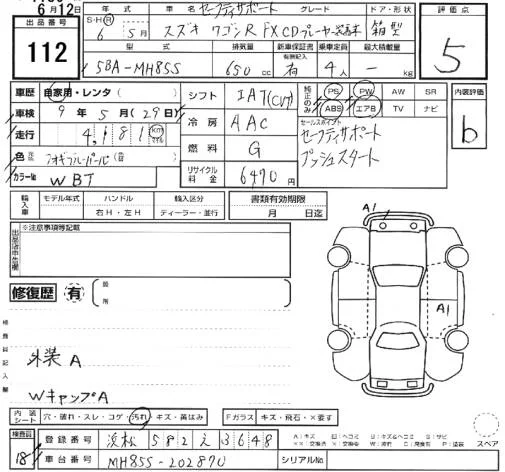 6月12日
出品番号
112
年式 車名 セーフティサポート グレード ドア・形状
S・H・R 6年 5月 スズキ ワゴンR FX CDプレーヤー装着車 箱型
型式 排気量 新車保証書 乗車定員 最大積載量
5BA-MH85S 650cc 有 4人 — kg
評価点
5
車歴 自家用・レンタ( )
車検 9年 5月(29日)
走行 4,181 km
色 フォギーブルーパール(
カラーNo WBT
シフト IAT(CVT)
冷房 AAC
燃料 G
リサイクル料金 6470円
純正のみ PS PW AW SR
ABS エアB TV ナビ
セールスポイント
セーフティサポート
プッシュスタート
内装評価
b
輸入車 モデル年式 ハンドル 輸入区分
右H・左H ディーラー・並行
書類有効期限
月 日迄
出品店申告欄
※注意事項等記載
修復歴 有 箇所
検査員記入欄
外装A
WキャップA
A1
A1
内装シート 穴・破れ・スレ・コゲ・汚れ・キズ・黄ばみ
Fガラス キズ・飛石・×要す
検査員
18
登録番号 浜松 582 え 3648
車台番号 MH85S-202870
シリアルNo.
A:キズ
スペア